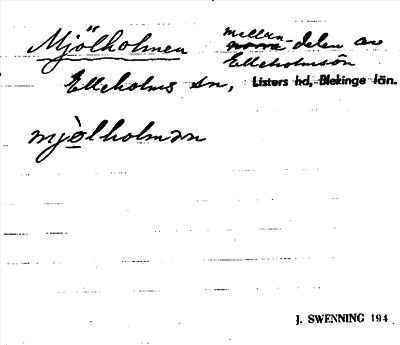 Mjölholmen mellan-delen av
Elleholmsön
Elleholms sn, Listers hd, Blekinge län.
mjòlholmən
J. SWENNING 194